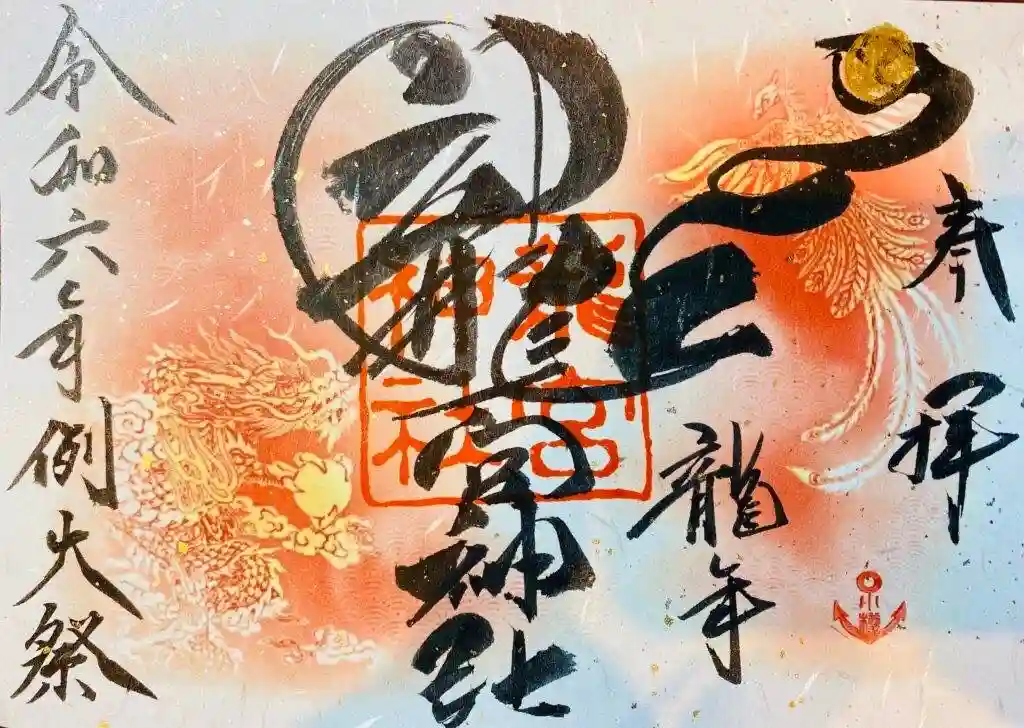 奉拝
龍年
龍宮神社
龍宮
神社
令和六年例大祭
小樽